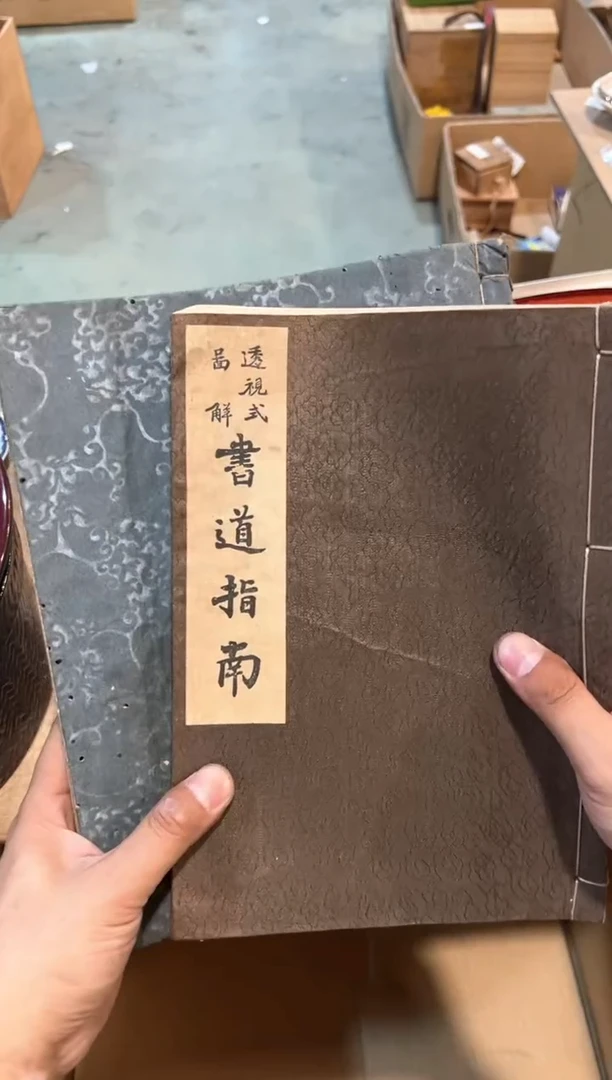 透視式
啚解
書道指南